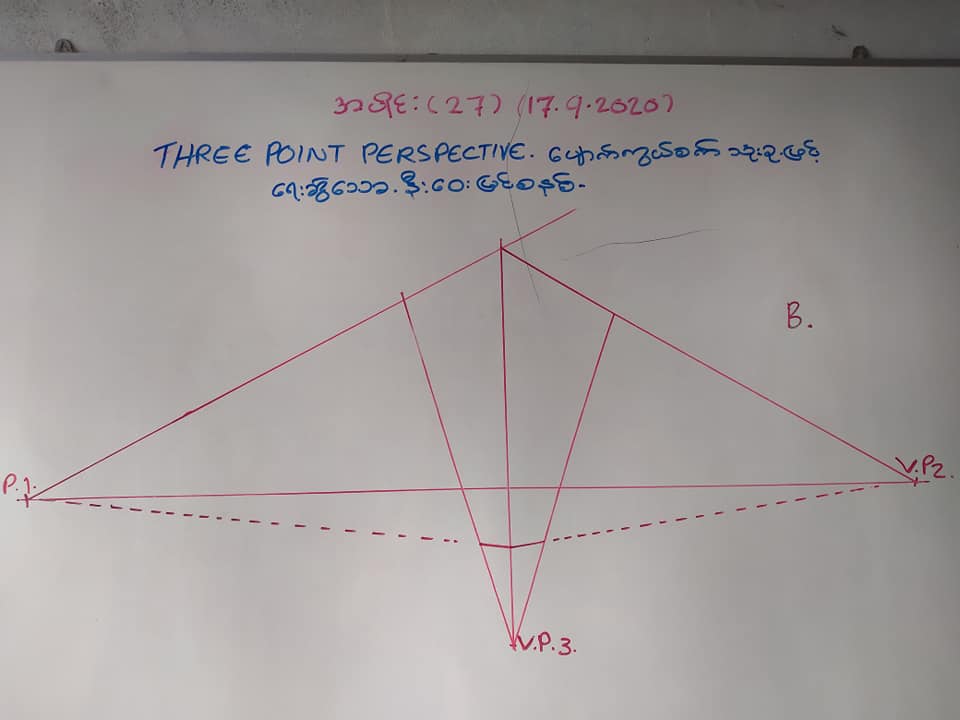 အပိုင်း (27) (17.9.2020)
THREE POINT PERSPECTIVE. ပျောက်ကွယ်စက် သုံးခုဖြင့်
ရေးဆွဲသော. နီးဝေးမြင်စနစ်.
B.
P.1.
V.P2.
V.P.3.